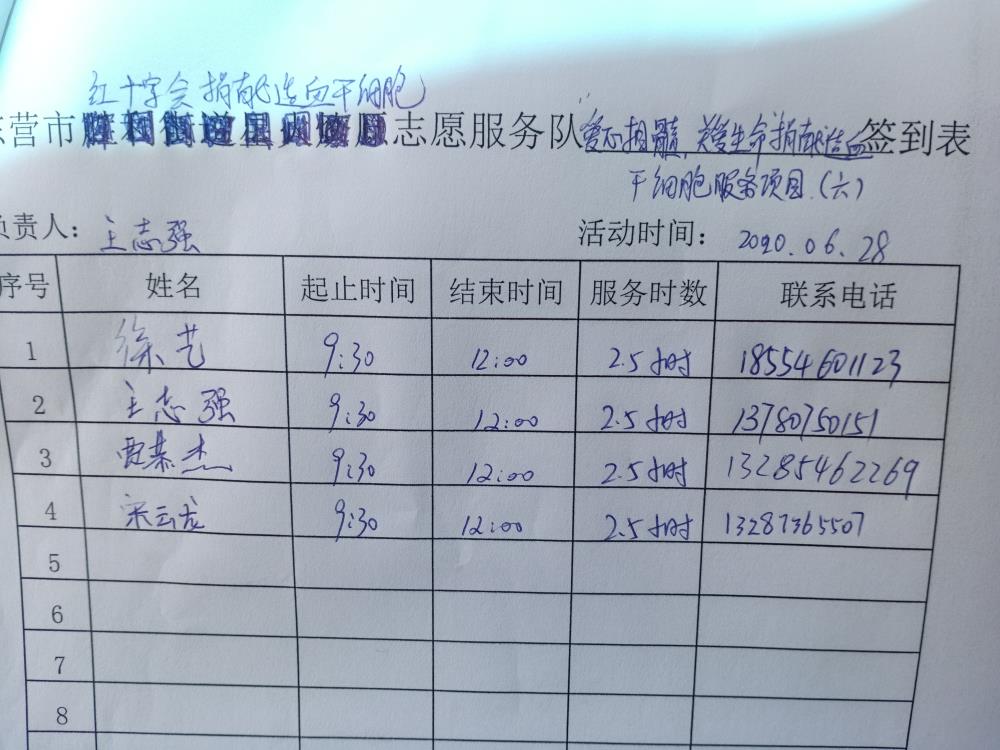 红十字会捐献造血干细胞
东营市志愿服务队爱心相髓,关爱生命捐献造血签到表
干细胞服务项目.(六)
负责人: 王志强 活动时间: 2020.06.28
序号 姓名 起止时间 结束时间 服务时数 联系电话
1 徐艺 9:30 12:00 2.5小时 18554601123
2 王志强 9:30 12:00 2.5小时 13780750151
3 贾慕杰 9:30 12:00 2.5小时 13285462269
4 宋云龙 9:30 12:00 2.5小时 13287365507
5
6
7
8